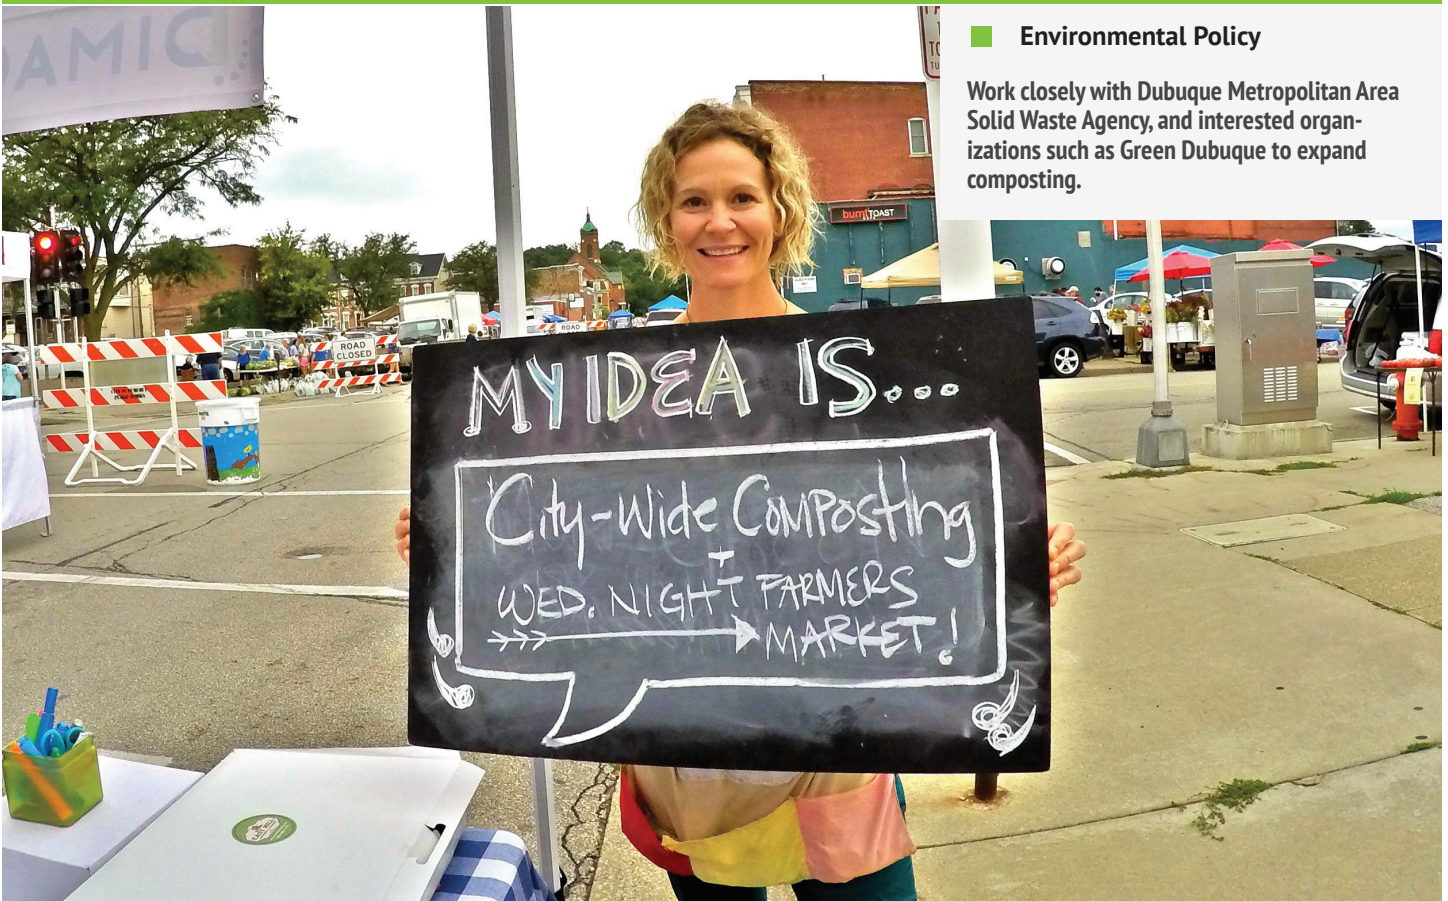 DIMA
Environmental Policy
Work closely with Dubuque Metropolitan Area
Solid Waste Agency, and interested organ-
izations such as Green Dubuque to expand
composting.
burnt TOAST
ROAD
ROAD
CLOSED
MY IDEA IS...
City-Wide Composting
+
WED. NIGHT FARMERS
MARKET!